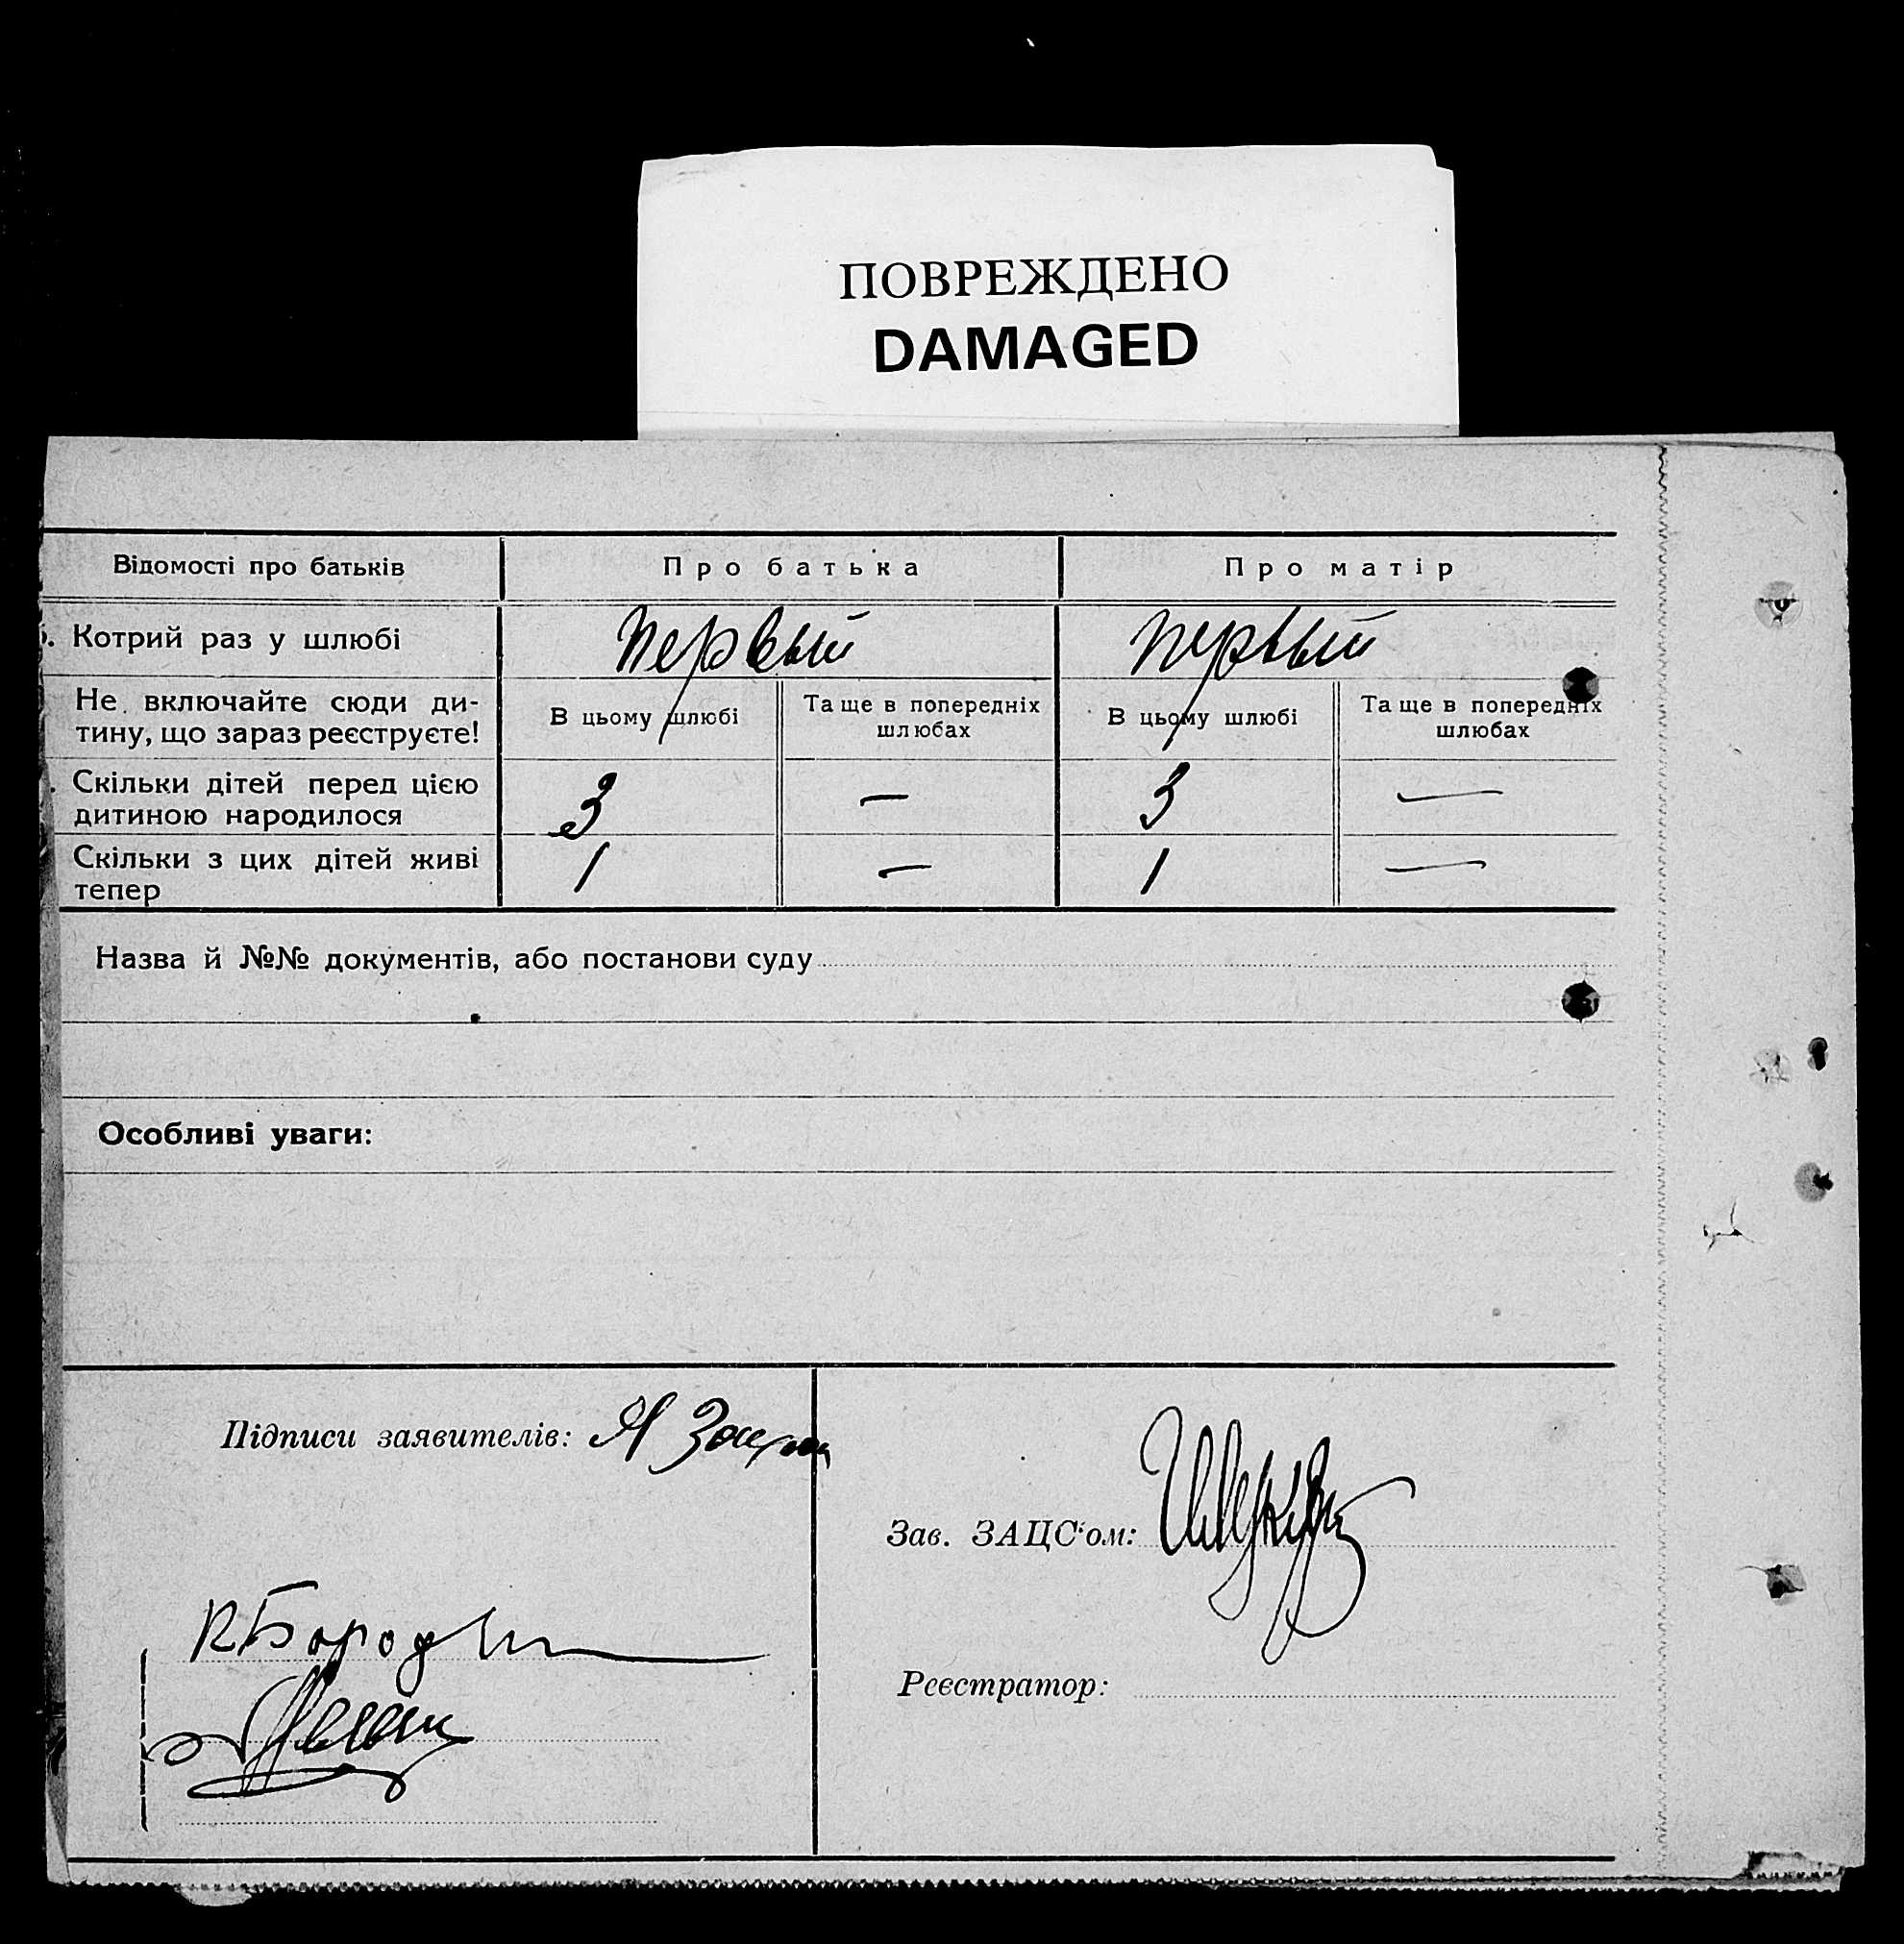 ПОВРЕЖДЕНО
DAMAGED
Відомості про батьків
Про батька
Про матір
Котрий раз у шлюбі
первый
первый
Не включайте сюди ди-
тину, що зараз реєструєте!
В цьому шлюбі
Та ще в попередніх
шлюбах
В цьому шлюбі
Та ще в попередніх
шлюбах
Скільки дітей перед цією
дитиною народилося
3
—
3
—
Скільки з цих дітей живі
тепер
1
—
1
—
Назва й №№ документів, або постанови суду
Особливі уваги:
Підписи заявителів:
Зав. ЗАЦС'ом:
Реєстратор: